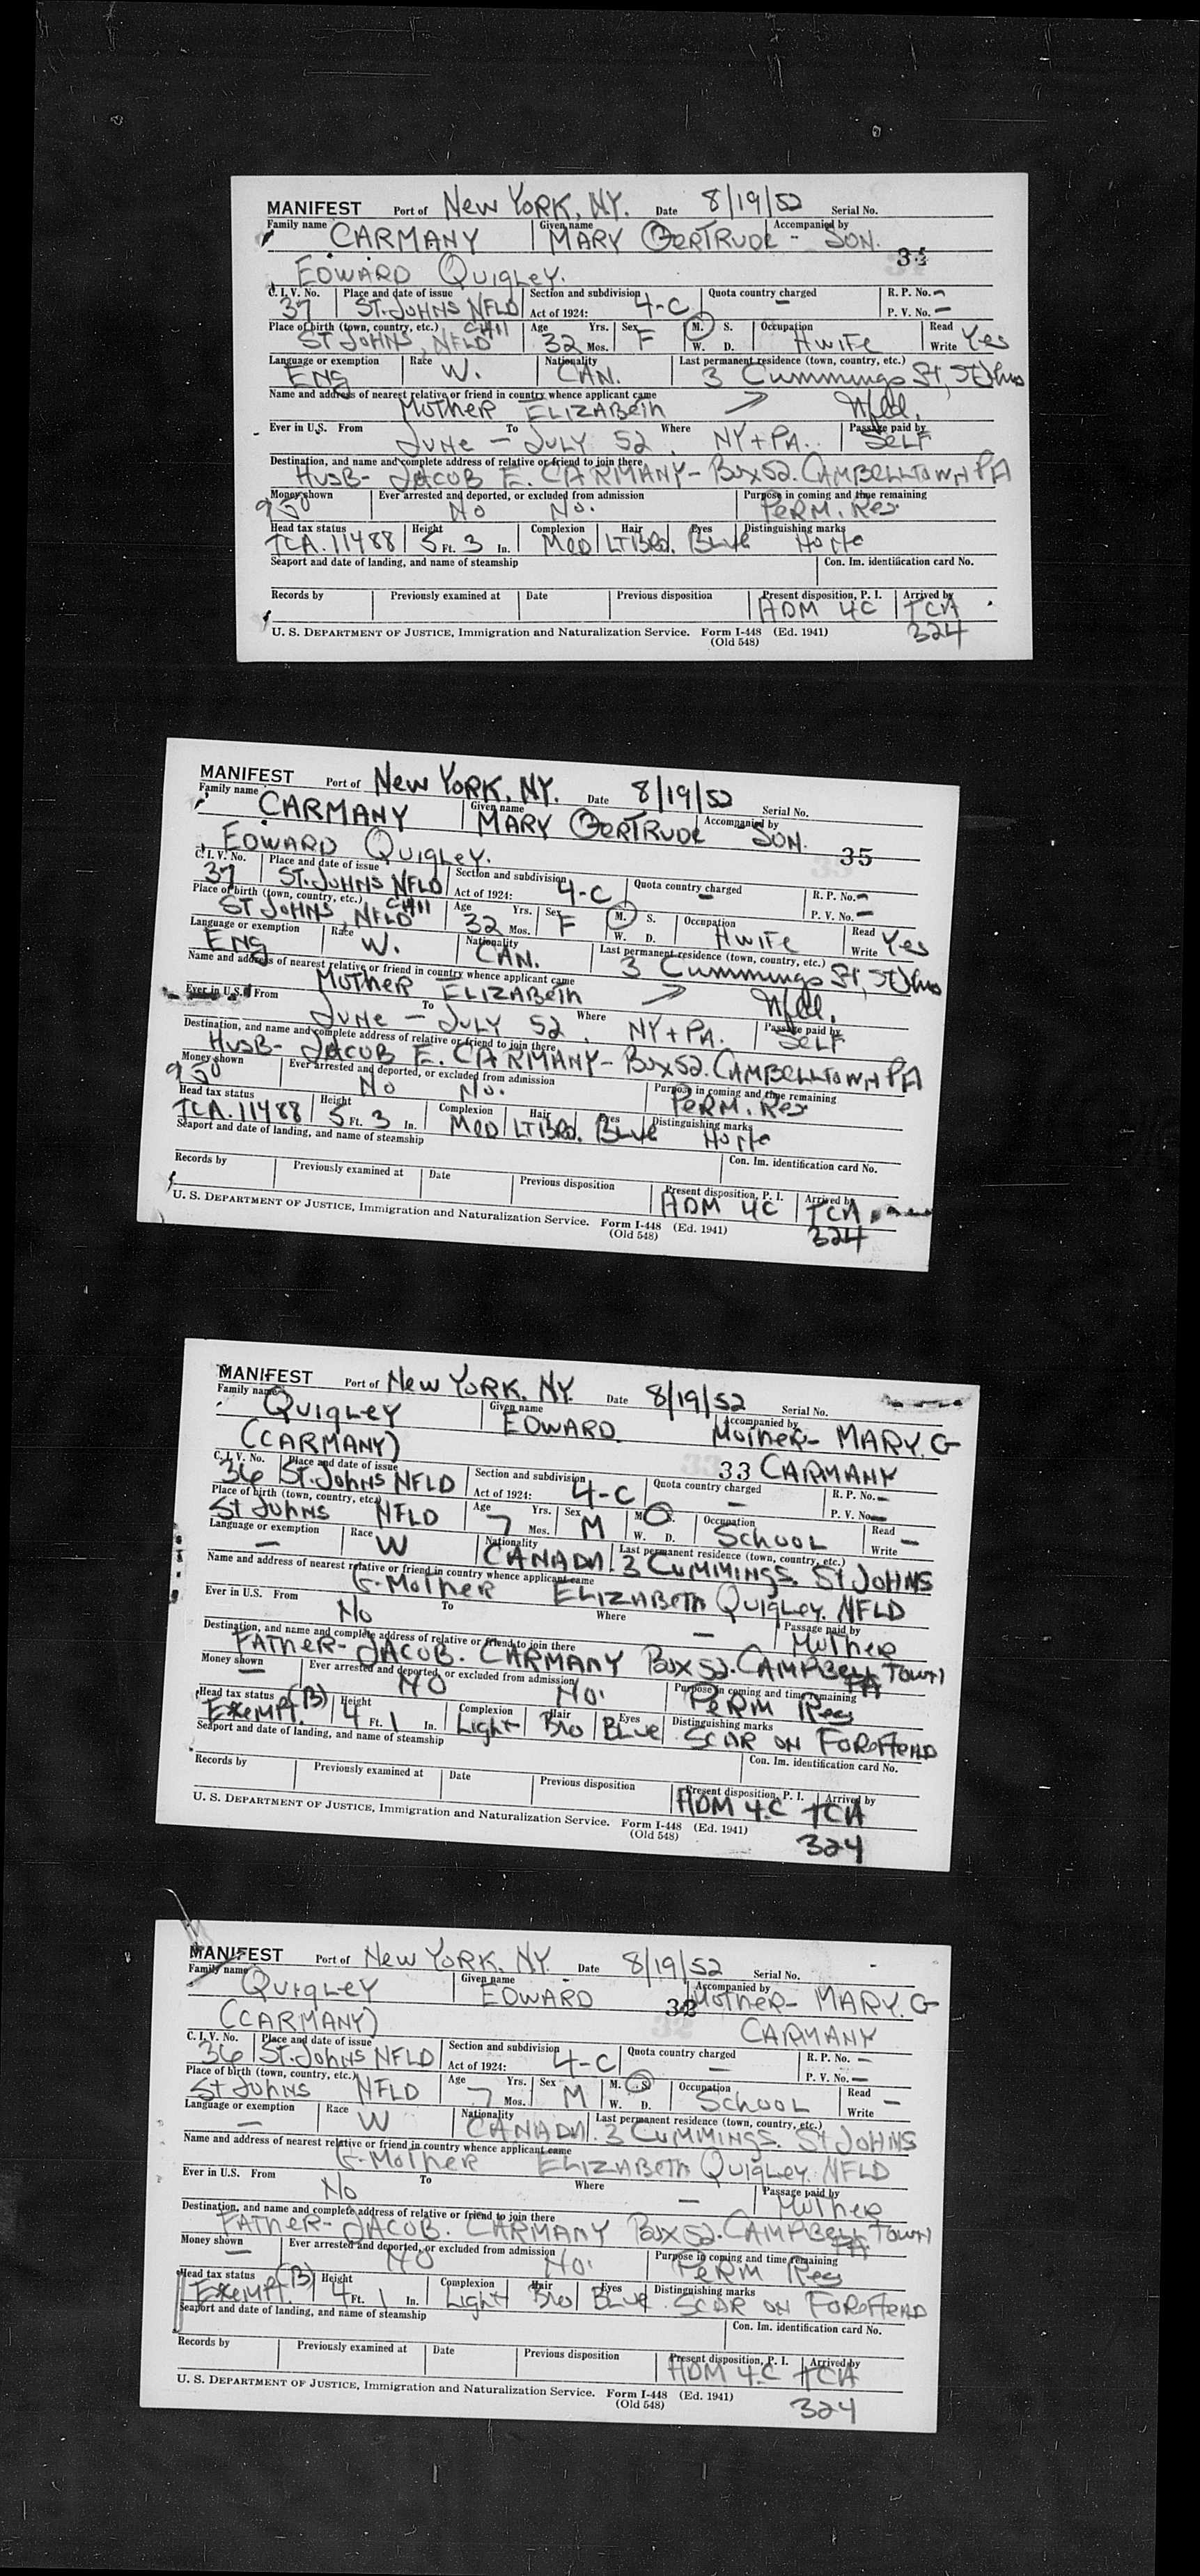 MANIFEST Port of New York, NY. Date 8/19/52 Serial No.
Family name CARMANY Given name MARY GERTRUDE - Accompanied by SON.
EDWARD QUIGLEY. 34
C. I. V. No. 37 Place and date of issue ST. JOHNS NFLD Section and subdivision Act of 1924: 4-C Quota country charged - R. P. No. - P. V. No. -
Place of birth (town, country, etc.) ST JOHNS, NFLD Age 32 Yrs. Mos. Sex F M. S. W. D. Occupation HWIFE Read Write Yes
Language or exemption ENG Race W. Nationality CAN. Last permanent residence (town, country, etc.) 3 Cummings St, St Johns
Name and address of nearest relative or friend in country whence applicant came MOTHER ELIZABETH Nfld.
Ever in U.S. From JUNE - To JULY 52 Where NY + PA. Passage paid by SELF
Destination, and name and complete address of relative or friend to join there HUSB- JACOB E. CARMANY - BOX 52. CAMBELLTOWN PA
Money shown Ever arrested and deported, or excluded from admission NO NO. Purpose in coming and time remaining PERM. Res
Head tax status TCA. 11488 Height 5 Ft. 3 In. Complexion MED Hair LT BRO. Eyes BLUE Distinguishing marks
Seaport and date of landing, and name of steamship Con. Im. identification card No.
Records by Previously examined at Date Previous disposition Present disposition, P. I. ADM 4C Arrived by TCA
U. S. DEPARTMENT OF JUSTICE, Immigration and Naturalization Service. Form I-448 (Ed. 1941) 324
(Old 548)
MANIFEST Port of New York, NY. Date 8/19/52 Serial No.
Family name CARMANY Given name MARY GERTRUDE - Accompanied by SON.
EDWARD QUIGLEY. 35
C. I. V. No. 37 Place and date of issue ST. JOHNS NFLD Section and subdivision Act of 1924: 4-C Quota country charged - R. P. No. - P. V. No. -
Place of birth (town, country, etc.) ST JOHNS, NFLD Age 32 Yrs. Mos. Sex F M. S. W. D. Occupation HWIFE Read Write Yes
Language or exemption ENG Race W. Nationality CAN. Last permanent residence (town, country, etc.) 3 Cummings St, St Johns
Name and address of nearest relative or friend in country whence applicant came MOTHER ELIZABETH Nfld.
Ever in U.S. From JUNE - To JULY 52 Where NY + PA. Passage paid by SELF
Destination, and name and complete address of relative or friend to join there HUSB- JACOB E. CARMANY - BOX 52. CAMBELLTOWN PA
Money shown Ever arrested and deported, or excluded from admission NO NO. Purpose in coming and time remaining PERM. Res
Head tax status TCA. 11488 Height 5 Ft. 3 In. Complexion MED Hair LT BRO. Eyes BLUE Distinguishing marks
Seaport and date of landing, and name of steamship Con. Im. identification card No.
Records by Previously examined at Date Previous disposition Present disposition, P. I. ADM 4C Arrived by TCA
U. S. DEPARTMENT OF JUSTICE, Immigration and Naturalization Service. Form I-448 (Ed. 1941) 324
(Old 548)
MANIFEST Port of New York, NY. Date 8/19/52 Serial No.
Family name QUIGLEY Given name EDWARD. Accompanied by MOTHER - MARY. G
(CARMANY) 33 CARMANY
C. I. V. No. 36 Place and date of issue St. Johns NFLD Section and subdivision Act of 1924: 4-C Quota country charged - R. P. No. - P. V. No. -
Place of birth (town, country, etc.) St Johns NFLD Age 7 Yrs. Mos. Sex M M. S. W. D. Occupation SCHOOL Read Write -
Language or exemption - Race W Nationality CANADN. Last permanent residence (town, country, etc.) 3 CUMMINGS. St JOHNS
Name and address of nearest relative or friend in country whence applicant came G-MOTHER ELIZABETH QUIGLEY. NFLD
Ever in U.S. From No To Where - Passage paid by MOTHER
Destination, and name and complete address of relative or friend to join there FATHER - JACOB. CARMANY BOX 52. CAMPBELLTOWN PA
Money shown - Ever arrested and deported, or excluded from admission NO NO. Purpose in coming and time remaining PERM Res
Head tax status Exempt. (B) Height 4 Ft. 1 In. Complexion Light Hair BRO Eyes BLUE Distinguishing marks SCAR ON FOREHEAD
Seaport and date of landing, and name of steamship Con. Im. identification card No.
Records by Previously examined at Date Previous disposition Present disposition, P. I. ADM 4.C Arrived by TCA
U. S. DEPARTMENT OF JUSTICE, Immigration and Naturalization Service. Form I-448 (Ed. 1941) 324
(Old 548)
MANIFEST Port of New York, NY. Date 8/19/52 Serial No.
Family name QUIGLEY Given name EDWARD Accompanied by MOTHER - MARY. G
(CARMANY) 32 CARMANY
C. I. V. No. 36 Place and date of issue St. Johns NFLD Section and subdivision Act of 1924: 4-C Quota country charged - R. P. No. - P. V. No. -
Place of birth (town, country, etc.) St Johns NFLD Age 7 Yrs. Mos. Sex M M. S. W. D. Occupation SCHOOL Read Write -
Language or exemption - Race W Nationality CANADN. Last permanent residence (town, country, etc.) 3 CUMMINGS. St JOHNS
Name and address of nearest relative or friend in country whence applicant came G-MOTHER ELIZABETH QUIGLEY. NFLD
Ever in U.S. From No To Where - Passage paid by MOTHER
Destination, and name and complete address of relative or friend to join there FATHER - JACOB. CARMANY BOX 52. CAMPBELLTOWN PA
Money shown - Ever arrested and deported, or excluded from admission NO NO. Purpose in coming and time remaining PERM Res
Head tax status Exempt. (B) Height 4 Ft. 1 In. Complexion Light Hair BRO Eyes BLUE Distinguishing marks SCAR ON FOREHEAD
Seaport and date of landing, and name of steamship Con. Im. identification card No.
Records by Previously examined at Date Previous disposition Present disposition, P. I. ADM 4.C Arrived by TCA
U. S. DEPARTMENT OF JUSTICE, Immigration and Naturalization Service. Form I-448 (Ed. 1941) 324
(Old 548)